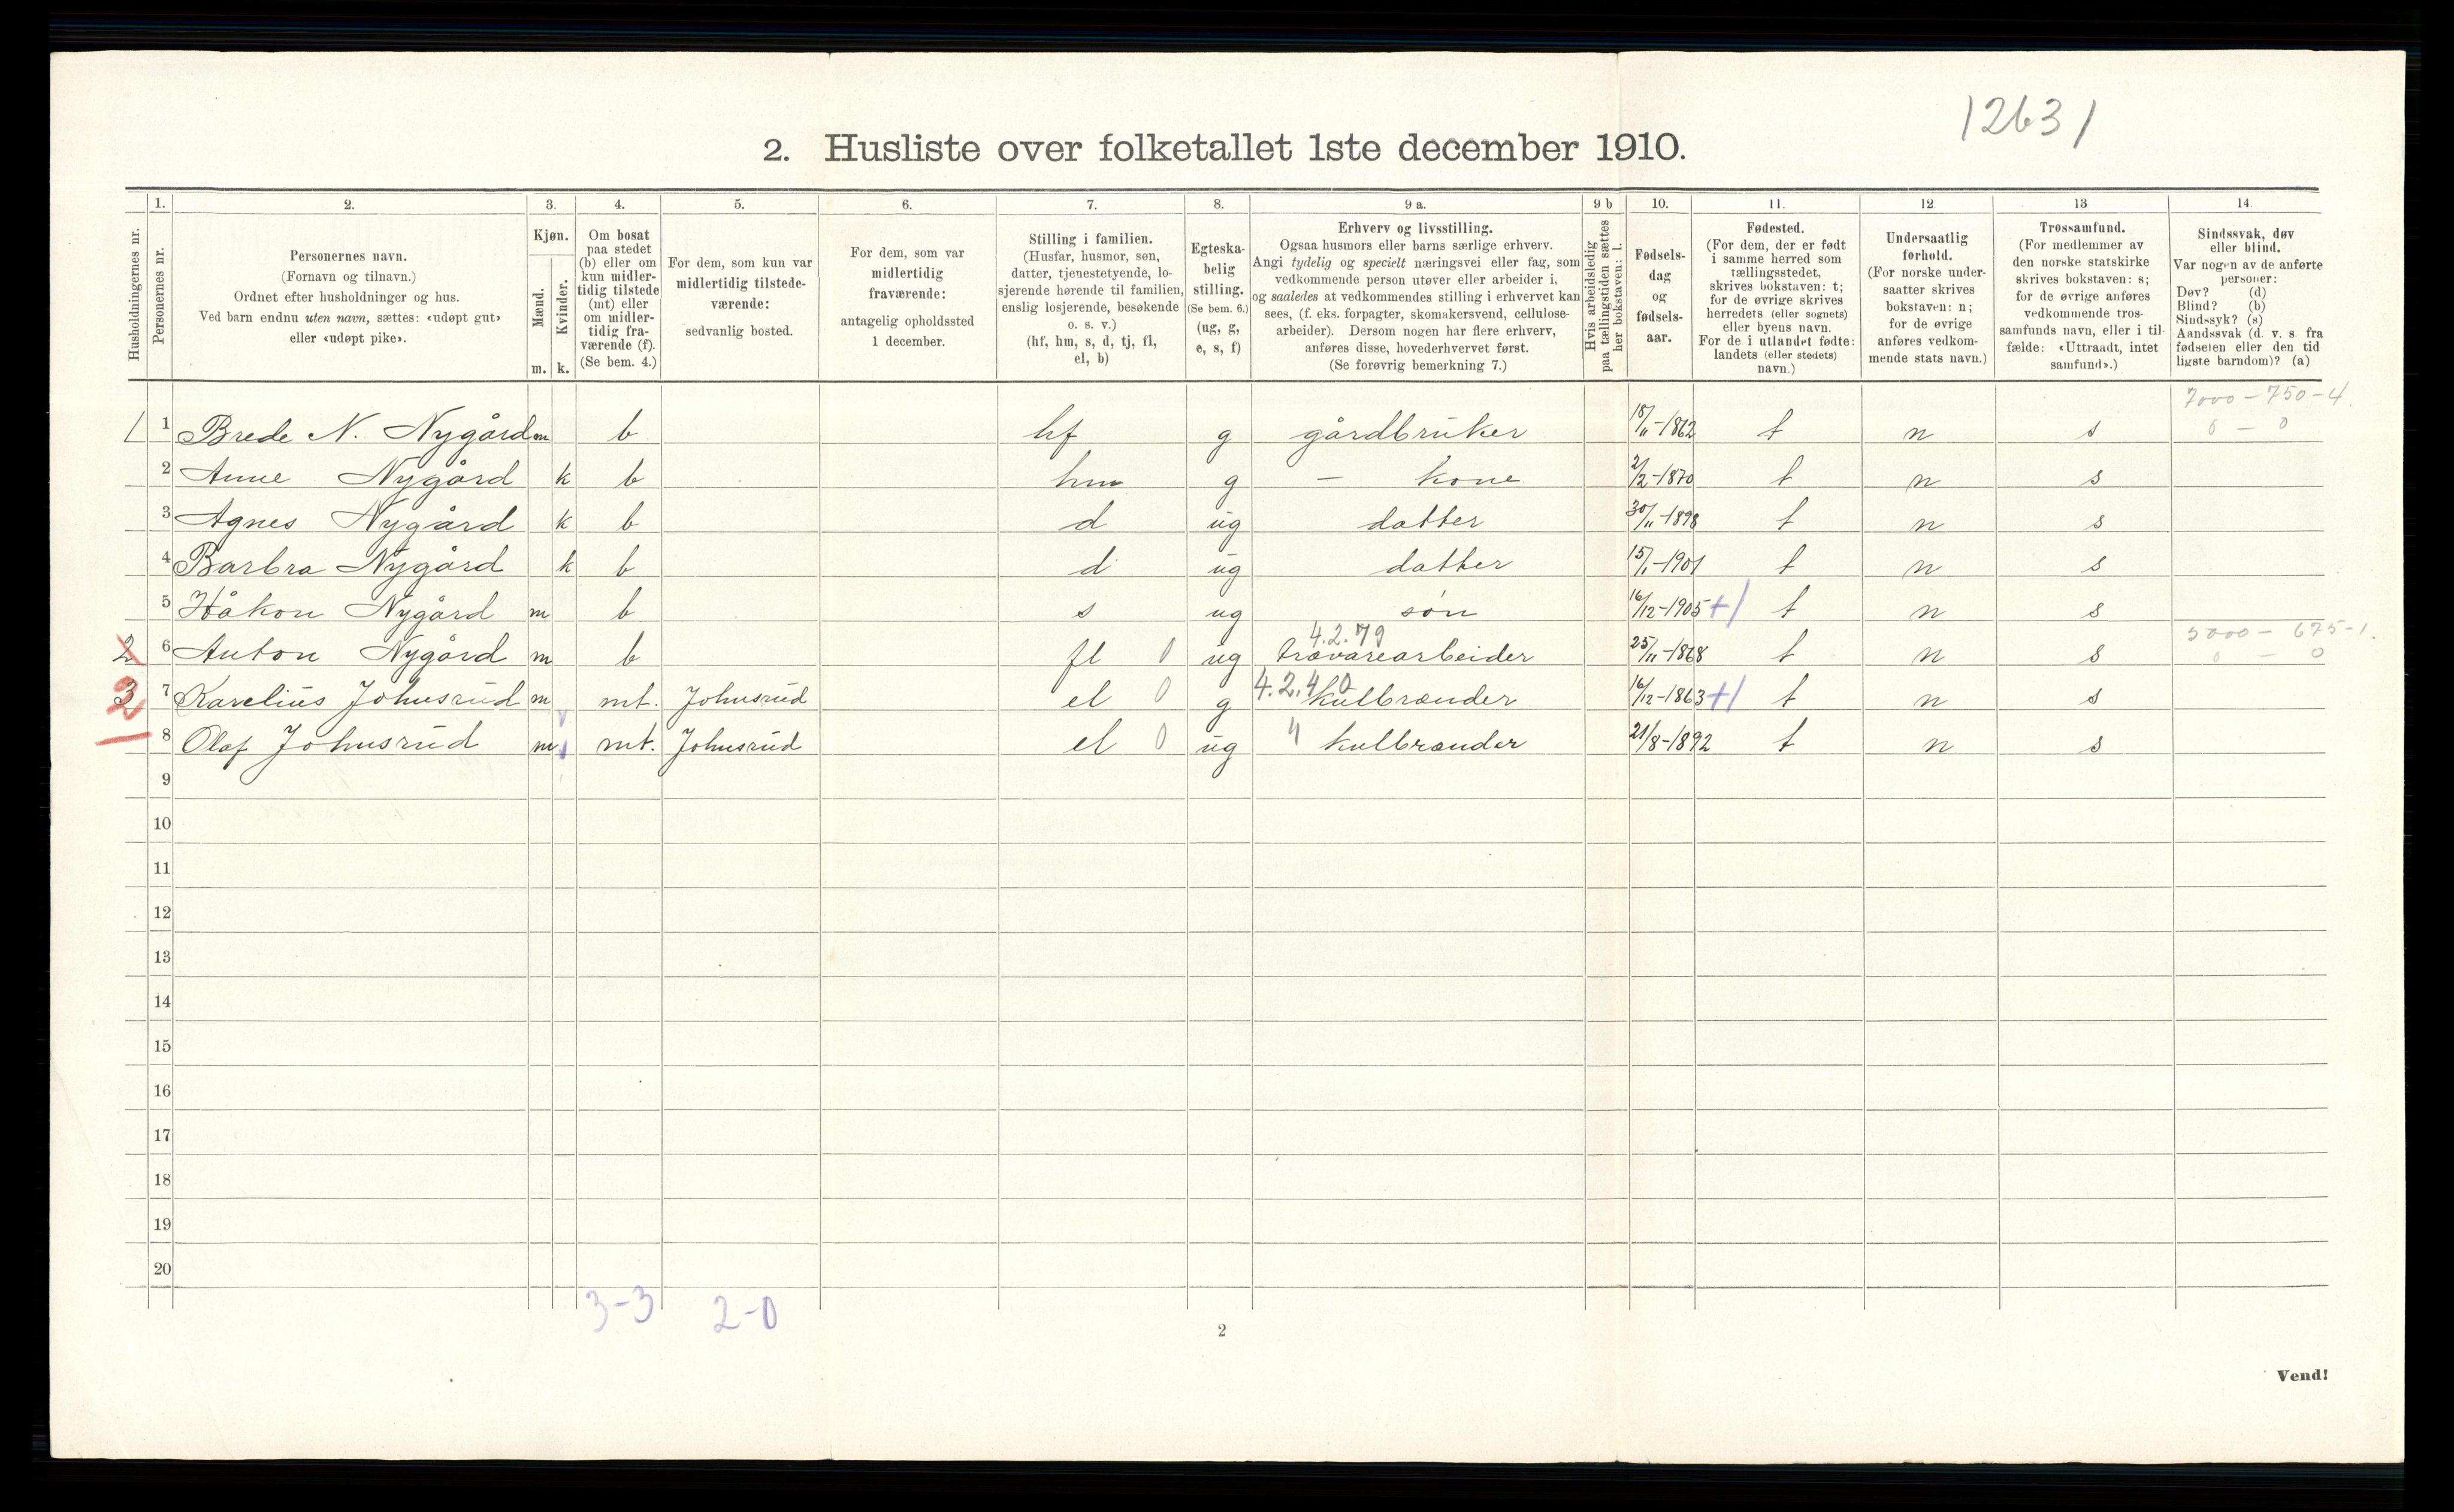 12631
2. Husliste over folketallet 1ste december 1910.
Husholdningernes nr.
1.
Personernes nr.
2.
Personernes navn.
(Fornavn og tilnavn.)
Ordnet efter husholdninger og hus.
Ved barn endnu uten navn, sættes: «udøpt gut»
eller «udøpt pike».
3.
Kjøn.
Mænd.
Kvinder.
m. k.
4.
Om bosat
paa stedet
(b) eller om
kun midler-
tidig tilstede
(mt) eller
om midler-
tidig fra-
værende (f).
(Se bem. 4.)
5.
For dem, som kun var
midlertidig tilstede-
værende:
sedvanlig bosted.
6.
For dem, som var
midlertidig
fraværende:
antagelig opholdssted
1 december.
7.
Stilling i familien.
(Husfar, husmor, søn,
datter, tjenestetyende, lo-
sjerende hørende til familien,
enslig losjerende, besøkende
o. s. v.)
(hf, hm, s, d, tj, fl,
el, b)
8.
Egteska-
belig
stilling.
(Se bem. 6.)
(ug, g,
e, s, f)
9 a.
Erhverv og livsstilling.
Ogsaa husmors eller barns særlige erhverv.
Angi tydelig og specielt næringsvei eller fag, som
vedkommende person utøver eller arbeider i,
og saaledes at vedkommendes stilling i erhvervet kan
sees, (f. eks. forpagter, skomakersvend, cellulose-
arbeider). Dersom nogen har flere erhverv,
anføres disse, hovederhvervet først.
(Se forøvrig bemerkning 7.)
9 b
Hvis arbeidsledig
paa tællingstiden sættes
her bokstaven: l.
10.
Fødsels-
dag
og
fødsels-
aar.
11.
Fødested.
(For dem, der er født
i samme herred som
tællingsstedet,
skrives bokstaven: t;
for de øvrige skrives
herredets (eller sognets)
eller byens navn.
For de i utlandet fødte:
landets (eller stedets)
navn.)
12.
Undersaatlig
forhold.
(For norske under-
saatter skrives
bokstaven: n;
for de øvrige
anføres vedkom-
mende stats navn.)
13
Trossamfund.
(For medlemmer av
den norske statskirke
skrives bokstaven: s;
for de øvrige anføres
vedkommende tros-
samfunds navn, eller i til-
fælde: «Uttraadt, intet
samfund».)
14.
Sindssvak, døv
eller blind.
Var nogen av de anførte
personer:
Døv? (d)
Blind? (b)
Sindssyk? (s)
Aandssvak (d. v. s. fra
fødselen eller den tid
ligste barndom)? (a)
7000 - 750 - 4.
1 1 Brede N. Nygård m b hf g gårdbruker 18/11-1862 t n s 0 - 0
2 Anne Nygård k b hm g - kone 2/2-1870 t n s
3 Agnes Nygård k b d ug datter 30/11-1898 t n s
4 Barbra Nygård k b d ug datter 15/1-1901 t n s
5 Håkon Nygård m b s ug søn 16/12-1905 +/ t n s
4.2.79 5000 - 675-1.
2 6 Anton Nygård m b fl 0 ug trævarearbeider 25/11-1868 t n s 0 - 0
3 2 7 Karelius Johnsrud m mt. Johnsrud el 0 g 4.2.40 kulbrænder 16/12-1863 +/ t n s
8 Olaf Johnsrud m mt. Johnsrud el 0 ug 4 kulbrænder 21/8-1892 t n s
9
10
11
12
13
14
15
16
17
18
19
20
3-3 2-0
2
Vend!